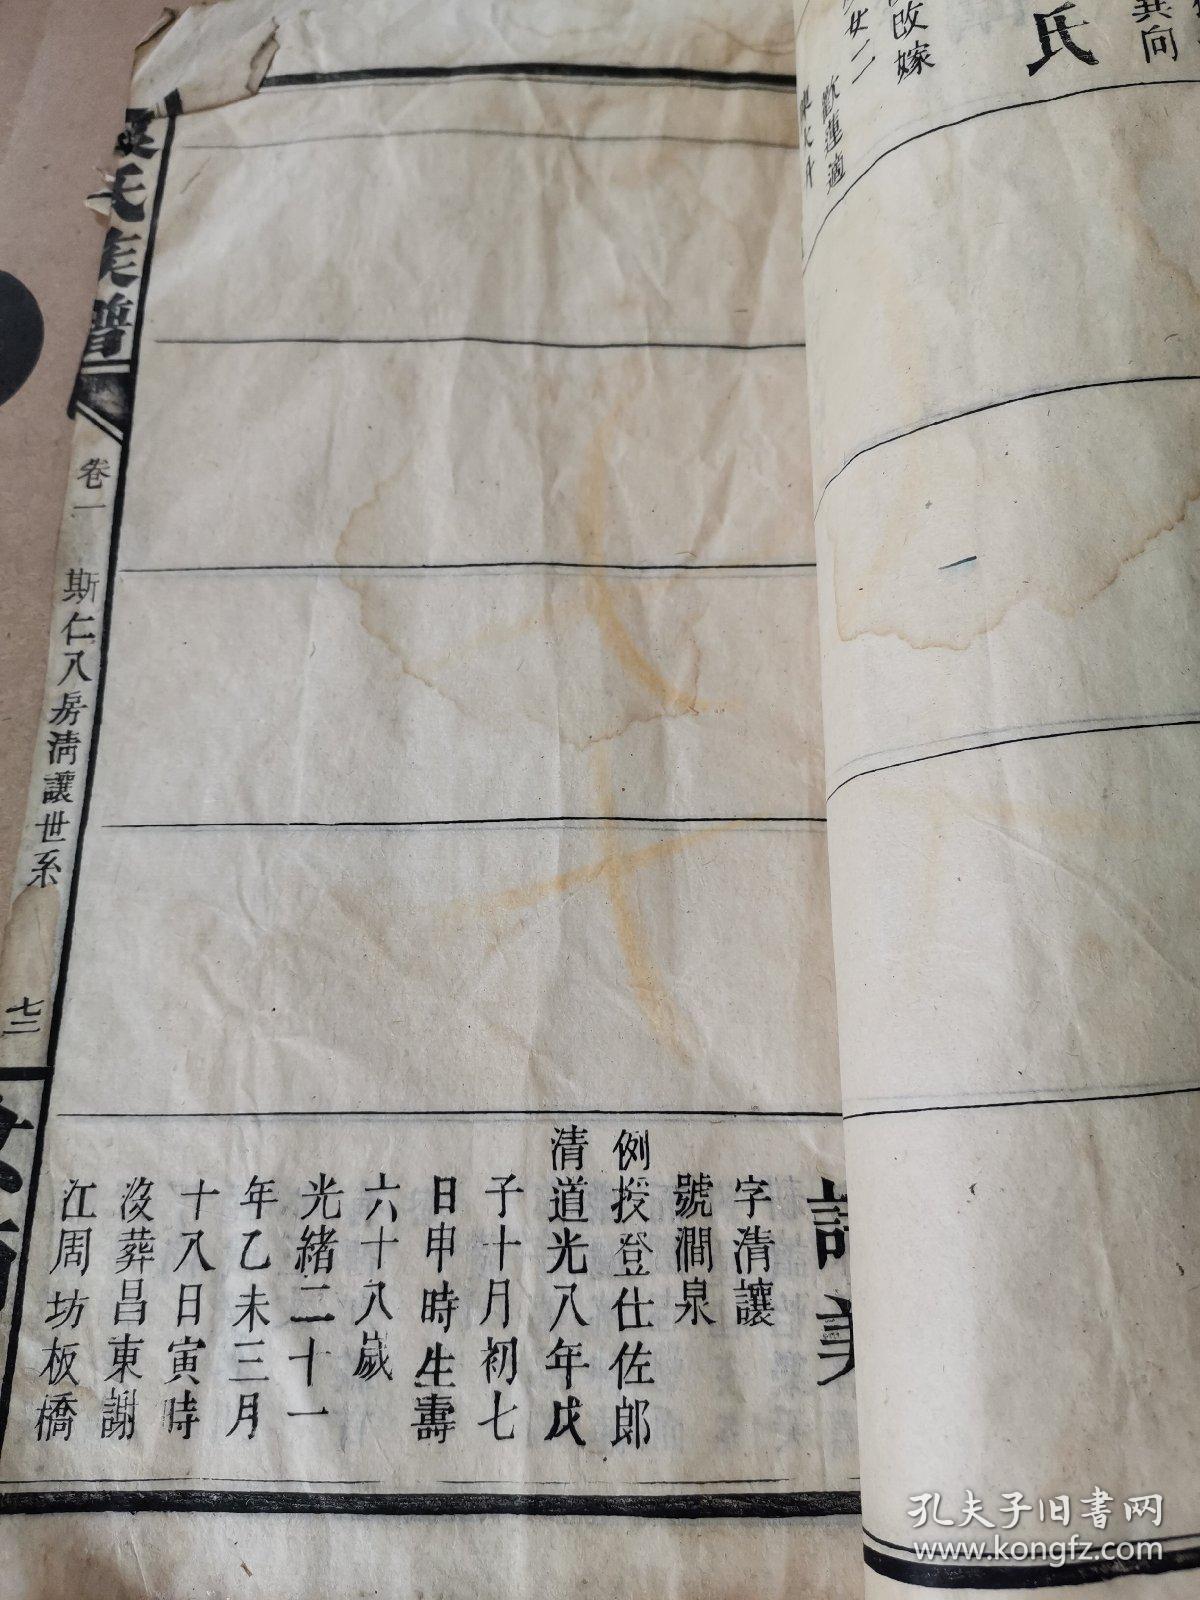 異向
氏
改嫁
女二
歡蓮適
美
字清讓
號澗泉
例授登仕佐郎
清道光八年戊
子十月初七
日申時生壽
六十八歲
光緒二十一
年乙未三月
十八日寅時
沒葬昌東謝
江周坊板橋
氏族譜
卷一
斯仁八房清讓世系
七三
孔夫子旧书网
www.kongfz.com